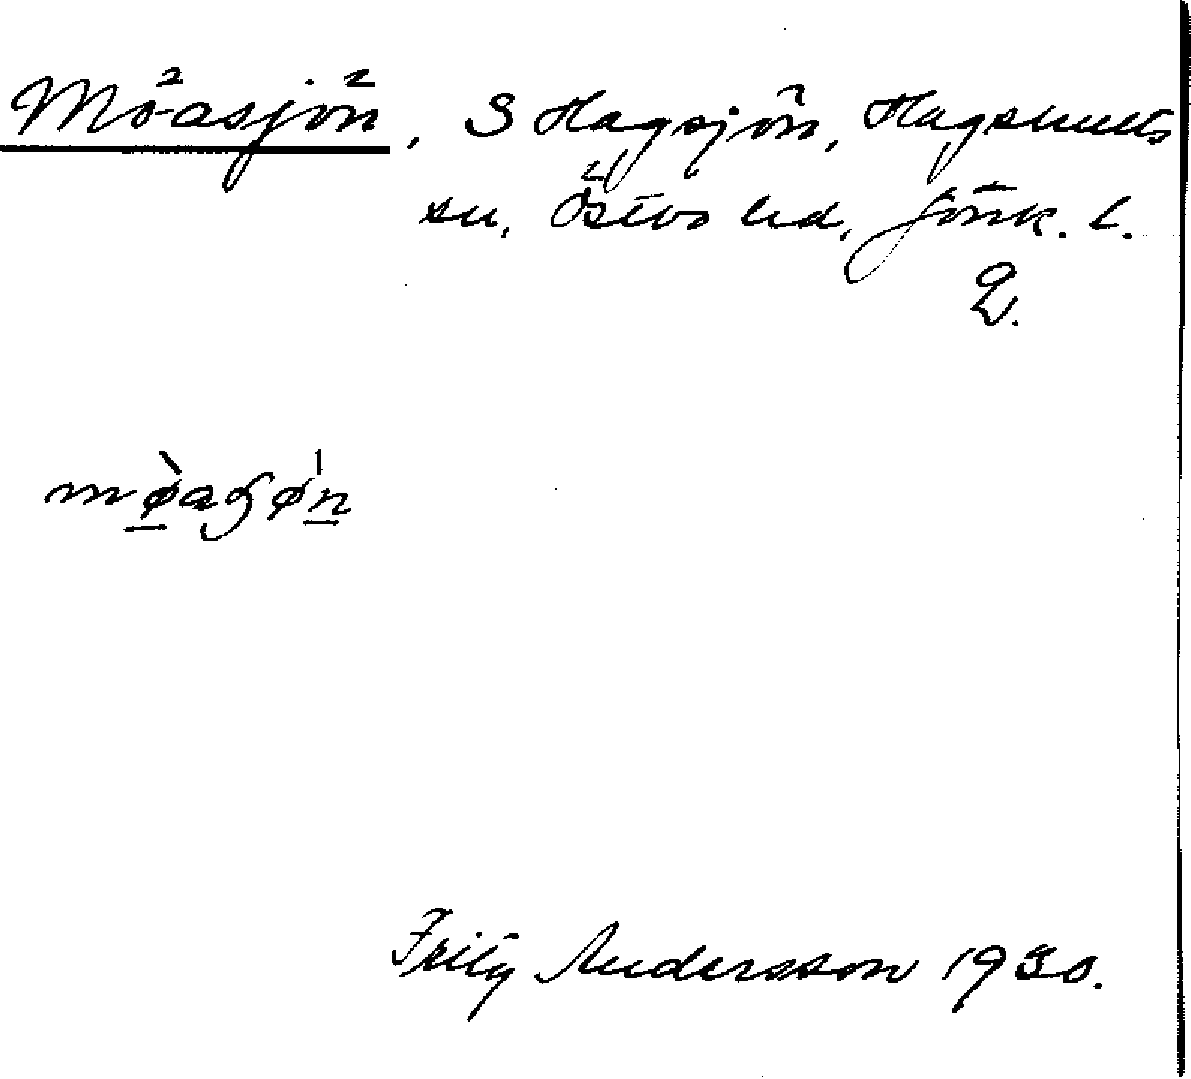 Möasjön, S Hagsjön, Hagshults
sn, Östbo hd, Jönk. l.
2.
mø̀aʃøń
Fritz Andersson 1930.